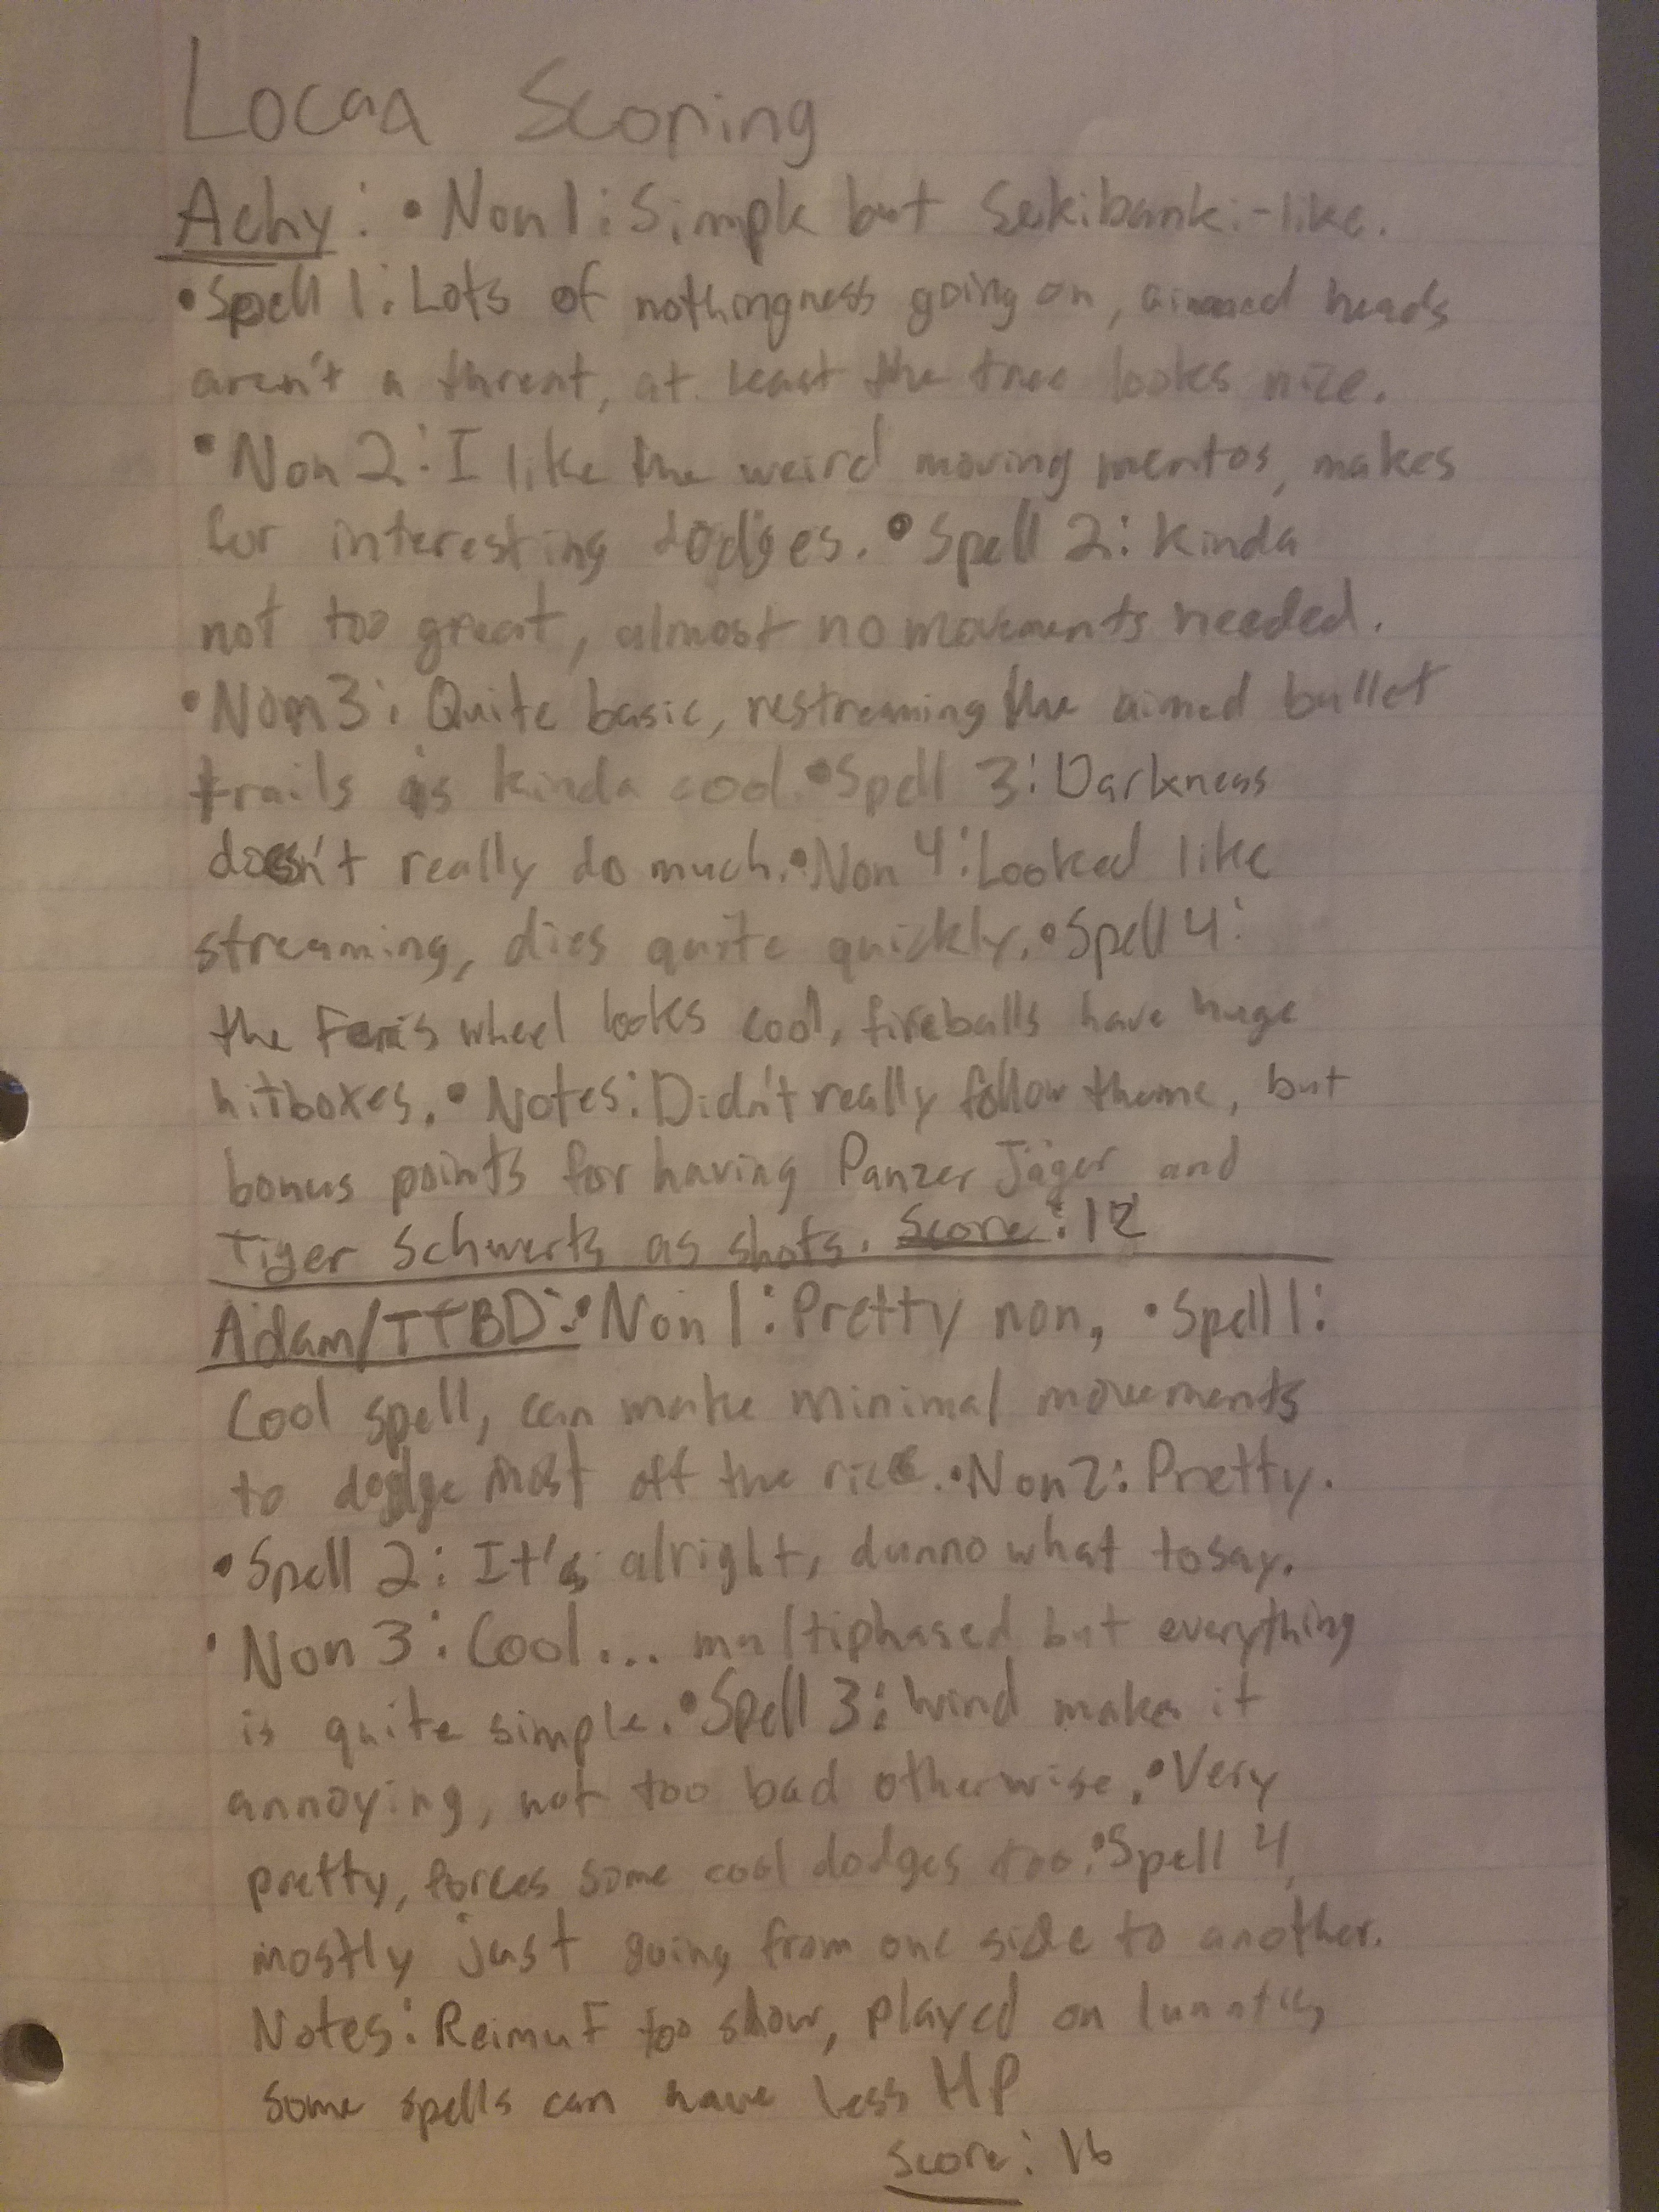 Locaa Scoring
Achy: • Non 1: Simple but Sekibanki-like.
• Spell 1: Lots of nothingness going on, aimed heads
aren't a threat, at least the tree looks nice.
• Non 2: I like the weird moving mentos, makes
for interesting dodges. • Spell 2: Kinda
not too great, almost no movements needed.
• Non 3: Quite basic, restreaming the aimed bullet
trails is kinda cool. • Spell 3: Darkness
doesn't really do much. • Non 4: Looked like
streaming, dies quite quickly. • Spell 4:
the Ferris wheel looks cool, fireballs have huge
hitboxes. • Notes: Didn't really follow theme, but
bonus points for having Panzer Jäger and
Tiger Schwerts as shots. Score: 12
Adam/TTBD: • Non 1: Pretty non, • Spell 1:
Cool spell, can make minimal movements
to dodge most off the rice. • Non 2: Pretty.
• Spell 2: It's alright, dunno what to say.
• Non 3: Cool... multiphased but everything
is quite simple. • Spell 3: Wind makes it
annoying, not too bad otherwise. • Very
pretty, forces some cool dodges too. • Spell 4,
mostly just going from one side to another.
Notes: ReimuF too slow, played on lunatic,
some spells can have less HP
Score: 16